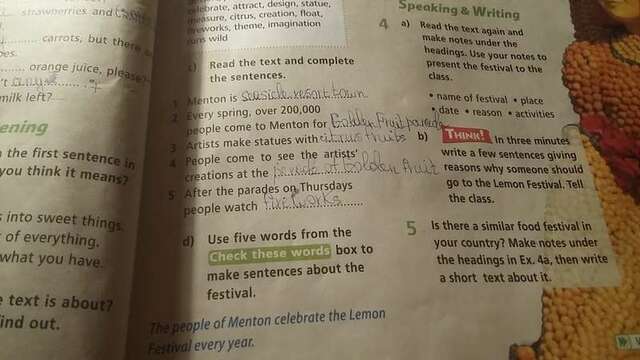 strawberries and
carrots, but there
orange juice, please?
milk left?
ening
n the first sentence in
you think it means?
s into sweet things.
of everything,
what you have.
e text is about?
ind out.
celebrate, attract, design, statue,
measure, citrus, creation, float,
fireworks, theme, imagination
runs wild
c) Read the text and complete
the sentences.
1 Menton is seaside resort town
2 Every spring, over 200,000
people come to Menton for Golden Fruit parade
3 Artists make statues with citrus fruits
4 People come to see the artists'
creations at the parade of Golden fruit
5 After the parades on Thursdays
people watch fireworks
d) Use five words from the
Check these words box to
make sentences about the
festival.
The people of Menton celebrate the Lemon
Festival every year.
Speaking & Writing
4 a) Read the text again and
make notes under the
headings. Use your notes to
present the festival to the
class.
• name of festival • place
• date • reason • activities
b) THINK! In three minutes
write a few sentences giving
reasons why someone should
go to the Lemon Festival. Tell
the class.
5 Is there a similar food festival in
your country? Make notes under
the headings in Ex. 4a, then write
a short text about it.